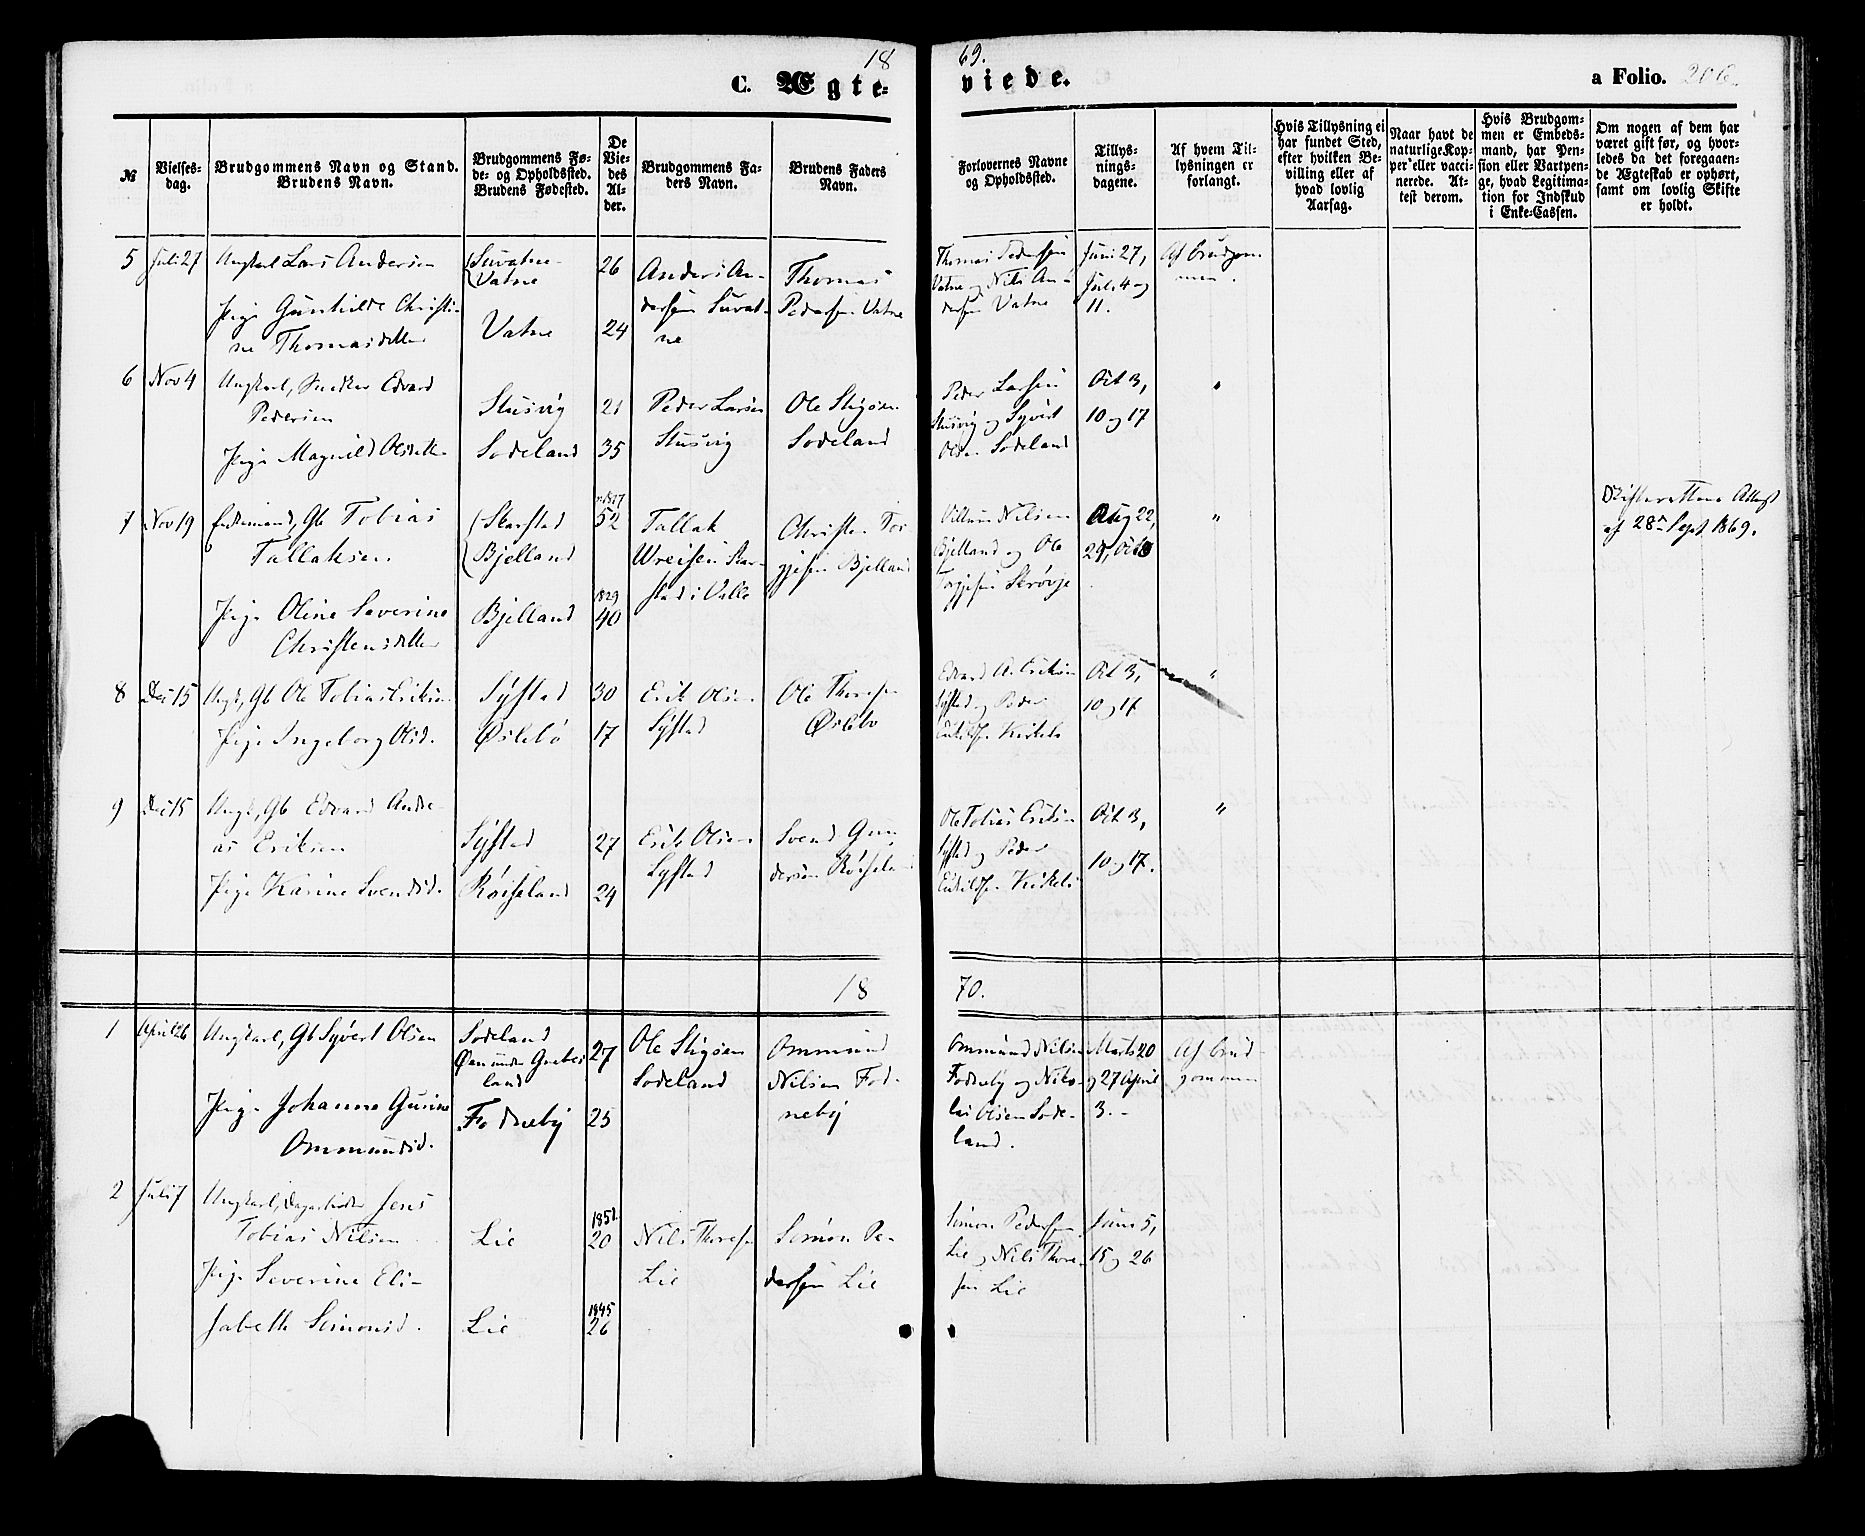 18 69.
C. Ægte- viede. a Folio. 206.
№
Vielses-
dag.
Brudgommens Navn og Stand.
Brudens Navn.
Brudgommens Fø-
de- og Opholdssted.
Brudens Fødested.
De
Vie-
des
Al-
der.
Brudgommens Fa-
ders Navn.
Brudens Faders
Navn.
Forlovernes Navne
og Opholdssted.
Tillys-
nings-
dagene.
Af hvem Til-
lysningen er
forlangt.
Hvis Tillysning ei
har fundet Sted,
efter hvilken Be-
villing eller af
hvad lovlig
Aarsag.
Naar havt de
naturlige Kop-
per eller vacci-
nerede. At-
test derom.
Hvis Brudgom-
men er Embeds-
mand, har Pen-
sion eller Vartpen-
ge, hvad Legitima-
tion for Indskud
i Enke-Cassen.
Om nogen af dem har
været gift før, og hvor-
ledes da det foregaaen-
de Ægteskab er ophørt,
samt om lovlig Skifte
er holdt.
5
Juli 27
Ungkarl Lars Andersen
Pige Gunhilde Christi-
ne Thomasdatter
Suvatne
Vatne
Vatne
26
24
Anders An-
dersen Suvat-
ne
Thomas
Pedersen Vatne
Thomas Pedersen
Vatne og Nils An-
dersen Vatne
Juni 27,
Juli 4 og
11.
Af Brudgom-
men.
6
Nov 4
Ungkarl, Snedker Edvard
Pedersen
Pige Magnild Olsdatter
Stusvig
Sodeland
21
35
Peder Larsen
Stusvig
Ole Stigsen
Sodeland
Peder Larsen
Stusvig og Syvert
Olsen Sodeland
Oct 3,
10 og 17
"
7
Nov 19
Enkemand, Gb Tobias
Tallaksen
Pige Oline Severine
Christensdatter
Skarstad
Bjelland
Bjelland
1817
52
1829
40
Tallak
Skar-
stad i Valle
Christen Tor-
gjesen Bjelland
Nilsen
Bjelland og Ole
Torgjesen
Aug 22,
29, Oct 3
"
Skifterettens Attest
af 28de Sept 1869.
8
Dec 15
Ungk, Gb Ole Tobias Eriksen
Pige Ingeborg Olsd.
Syftad
Øslebø
30
17
Erik Olsen
Syftad
Ole Thorsen
Øslebø
Edvard A. Eriksen
Syftad og Peder
Oct 3,
10 og 17
"
9
Dec 15
Ungk, Gb Edvard Andre-
as Eriksen
Pige Karine Svendsd.
Syftad
Røiseland
27
24
Erik Olsen
Syftad
Svend Gun-
dersen Røiseland
Ole Tobias Eriksen
Syftad og Peder
Oct 3,
10 og 17.
"
18 70.
1
April 26
Ungkarl, Gb Syvert Olsen
Pige Johanne Gurine
Ommundsd.
Sodeland
land
Fodneby
27
25
Ole Stigsen
Sodeland
Ommund
Nilsen Fod-
neby
Ommund Nilsen
Fodneby og Niko-
lai Olsen Sode-
land.
Marts 20
og 27 April
3.
Af Brud-
gommen
2
Juli 7
Ungkarl, Dagarbeider Jens
Tobias Nilsen
Pige Severine Eli-
sabeth Simonsd.
Lie
Lie
20
1845
26
Nils Thorsen
Lie
Simon Pe-
dersen Lie
Simon Pedersen
Lie og Nils Thor-
sen Lie
Juni 5,
15 og 26